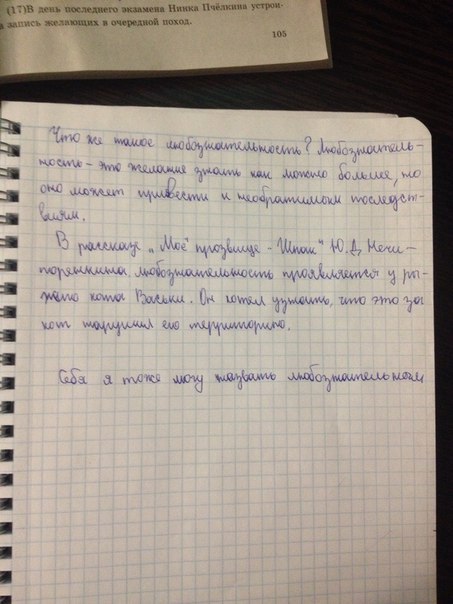 (17)В день последнего экзамена Нинка Пчёлкина устрои-
а запись желающих в очередной поход.
105
Что же такое любознательность? Любознатель-
ность – это желание знать как можно больше, но
оно может привести к необратимым последст-
виям.
В рассказе „Моё прозвище - Шпак" Ю.Д. Нечи-
поренкина любознательность проявляется у ры-
жего кота Васьки. Он хотел узнать, что это за
кот нарушил его территорию.
Себя я тоже могу назвать любознательным